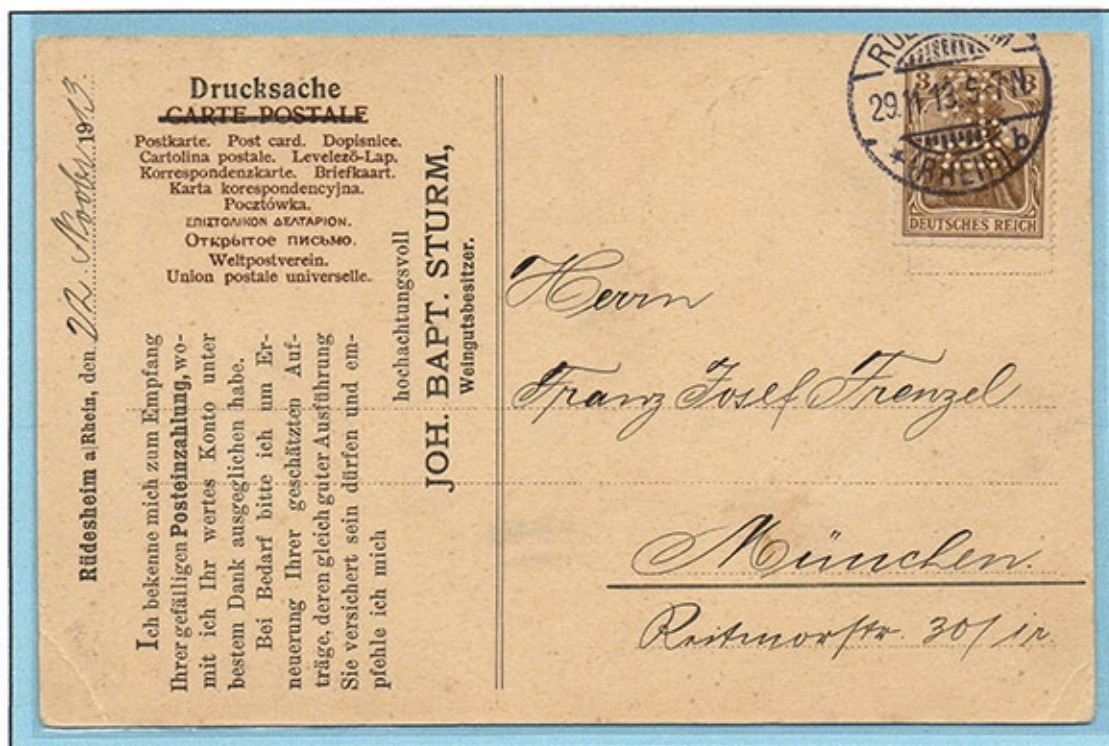 Drucksache
CARTE POSTALE
Postkarte. Post card. Dopisnice.
Cartolina postale. Levelező-Lap.
Korrespondenzkarte. Briefkaart.
Karta korespondencyjna.
Pocztówka.
ΕΠΙΣΤΟΛΙΚΟΝ ΔΕΛΤΑΡΙΟΝ.
Открытое письмо.
Weltpostverein.
Union postale universelle.
Rüdesheim a|Rhein, den 22. Novbr 1913
Ich bekenne mich zum Empfang
Ihrer gefälligen Posteinzahlung, wo-
mit ich Ihr wertes Konto unter
bestem Dank ausgeglichen habe.
Bei Bedarf bitte ich um Er-
neuerung Ihrer geschätzten Auf-
träge, deren gleich guter Ausführung
Sie versichert sein dürfen und em-
pfehle ich mich
hochachtungsvoll
JOH. BAPT. STURM,
Weingutsbesitzer.
29.11.13. 5-
(RHEIN) b
3 3
DEUTSCHES REICH
Herrn
Franz Josef Frenzel
München.
Reitmorstr. 30/